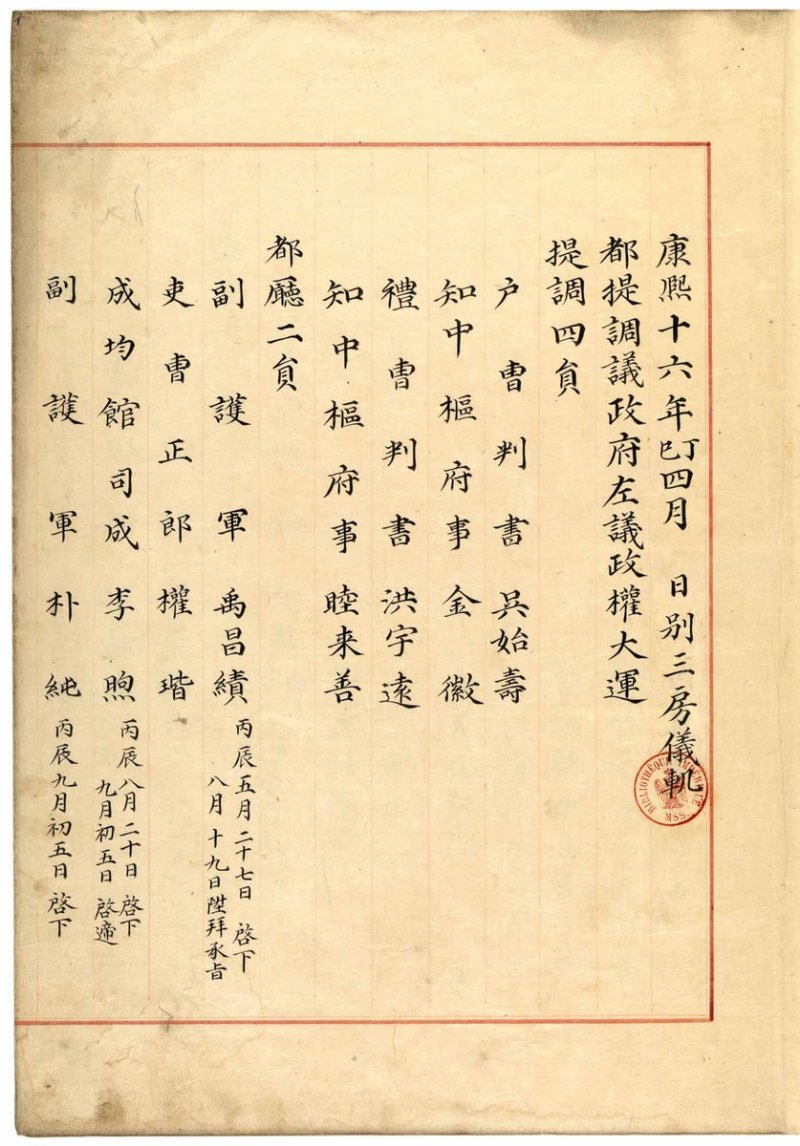 康熙十六年丁巳四月 日別三房儀軌
都提調議政府左議政權大運
提調四員
户曹判書吳始壽
知中樞府事金徽
禮曹判書洪宇遠
知中樞府事睦来善
都廳二員
副護軍禹昌績 丙辰五月二十七日 啓下
八月十九日陞拜承旨
吏曹正郎權瑎
成均館司成李煦 丙辰八月二十日 啓下
九月初五日 啓遞
副護軍朴純 丙辰九月初五日 啓下
BIBLIOTHÈQUE IMPÉRIALE MSS